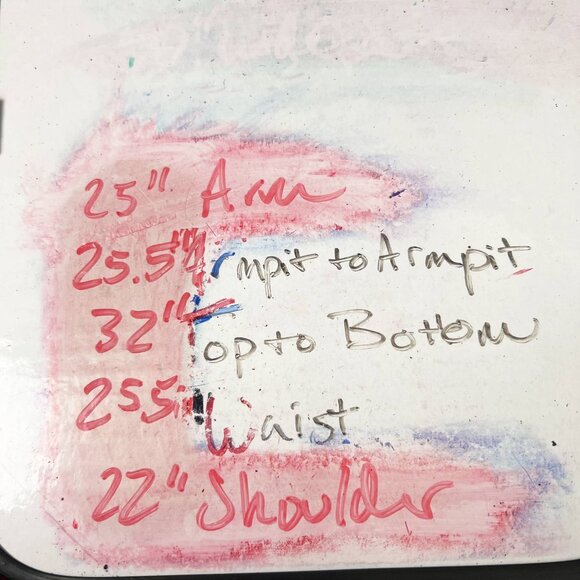 25" Arm
25.5" Armpit to Armpit
32" Top to Bottom
25.5" Waist
22" Shoulder